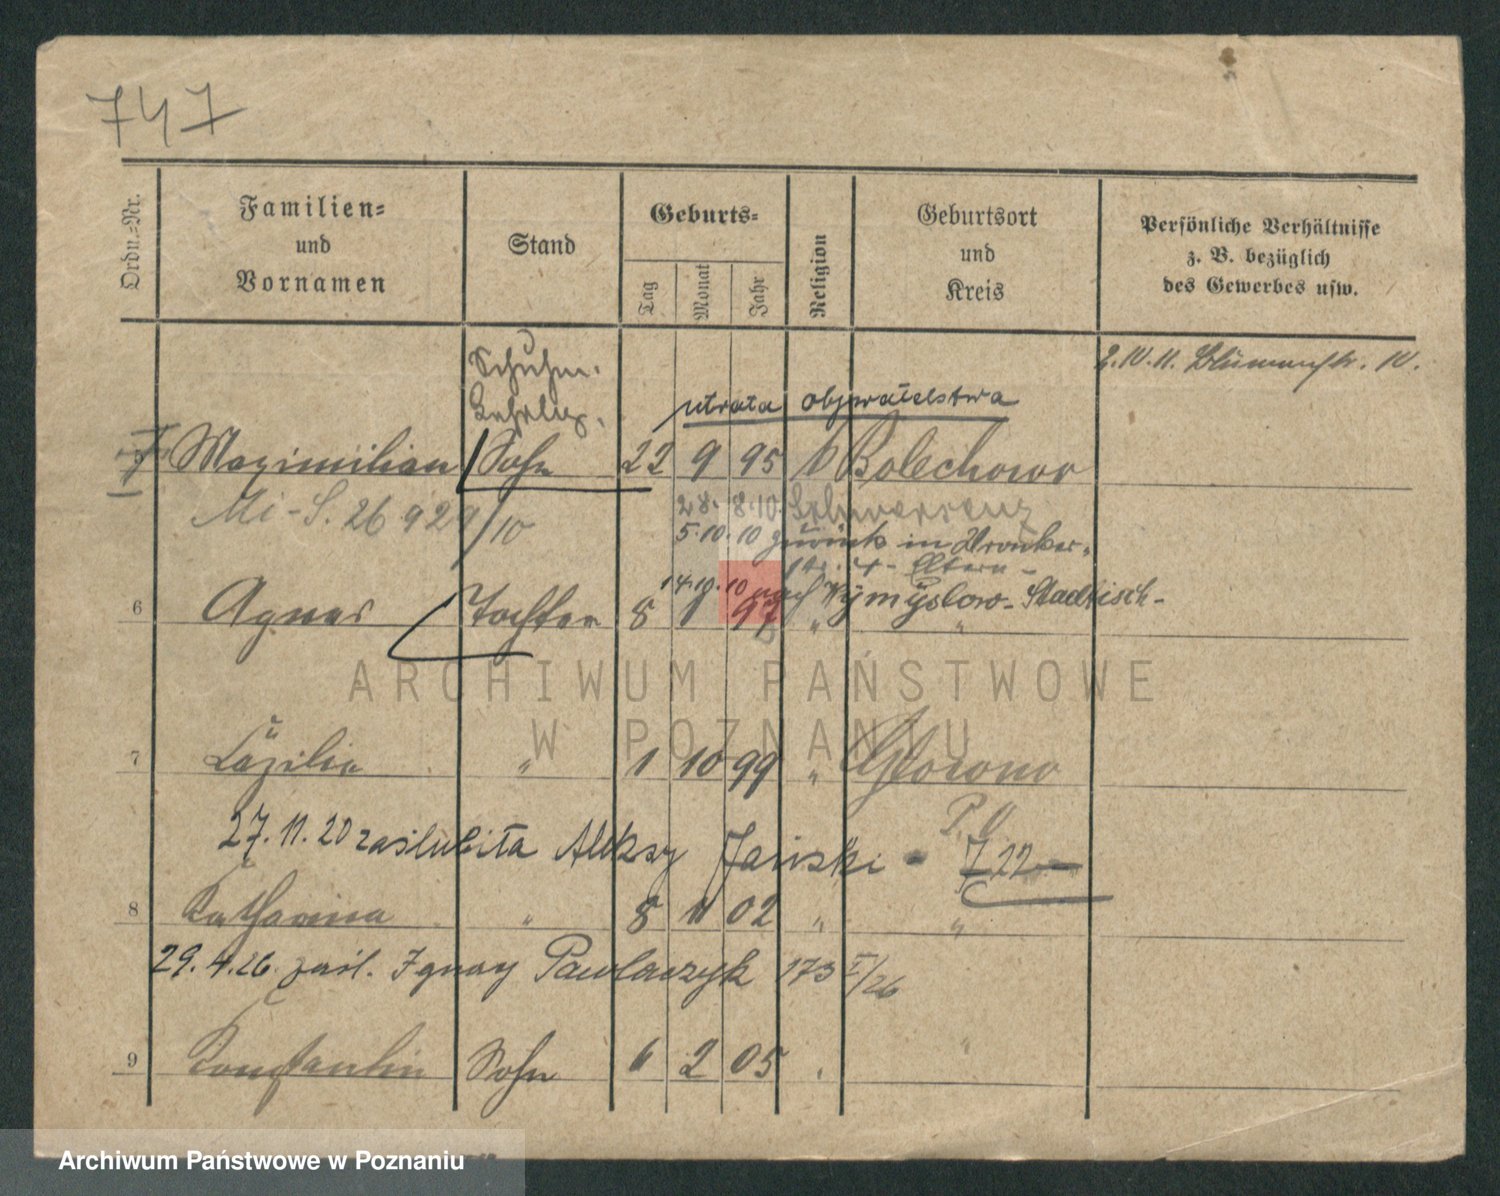 747
Ordn.-Nr.
Familien-
und
Vornamen
Stand
Geburts-
Tag
Monat
Jahr
Religion
Geburtsort
und
Kreis
Persönliche Verhältnisse
z. B. bezüglich
des Gewerbes usw.
2.IV.11. Blumenstr. 10.
Schuhm.
Lehrling.
utrata obywatelstwa
Maximilian Sohn 22 9 95 Bolechowo
Mi-S. 26 929/10
28. 8.10. Schwersenz
5.10.10 zurück in Wronker-
str. 4 - Eltern -
14.10.10 nach Wymyslow - Stadtisch-
6 Agnes Tochter 8 1 97 " "
ARCHIWUM PAŃSTWOWE
W POZNANIU
7 Cäzilia " 1 10 99 " Glowno
27.11.20 zaślubiła Aleksy Jański - 722
8 Katharina " 8 11 02 " "
29.4.26. zaśl. Ignacy Pawlaczyk 173 I/26
9 Konstantin Sohn 6 2 05 . "
Archiwum Państwowe w Poznaniu